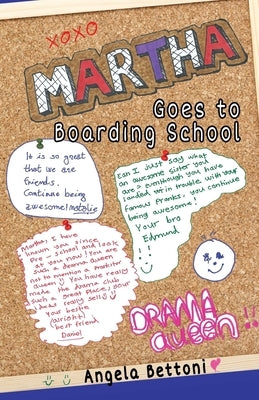 XOXO
MARTHA
Goes to
Boarding School
It is so great
that we are
friends.
Continue being
awesome! Natalie
Can I just say what
an awesome sister you
are = eventhough you have
landed us in trouble with your
famous Pranks. you continue
being awesome!
Your bro
Edmund
Martha, I have
known you since
Pre-School and look
at you now! You are
such a drama queen
not to mention a Prankster
queen!! You have really
made the drama club
such a great place, your
head really sell
Your bestie
(alright)
best friend
Daniel
DRAMA
Queen!!
Angela Bettoni